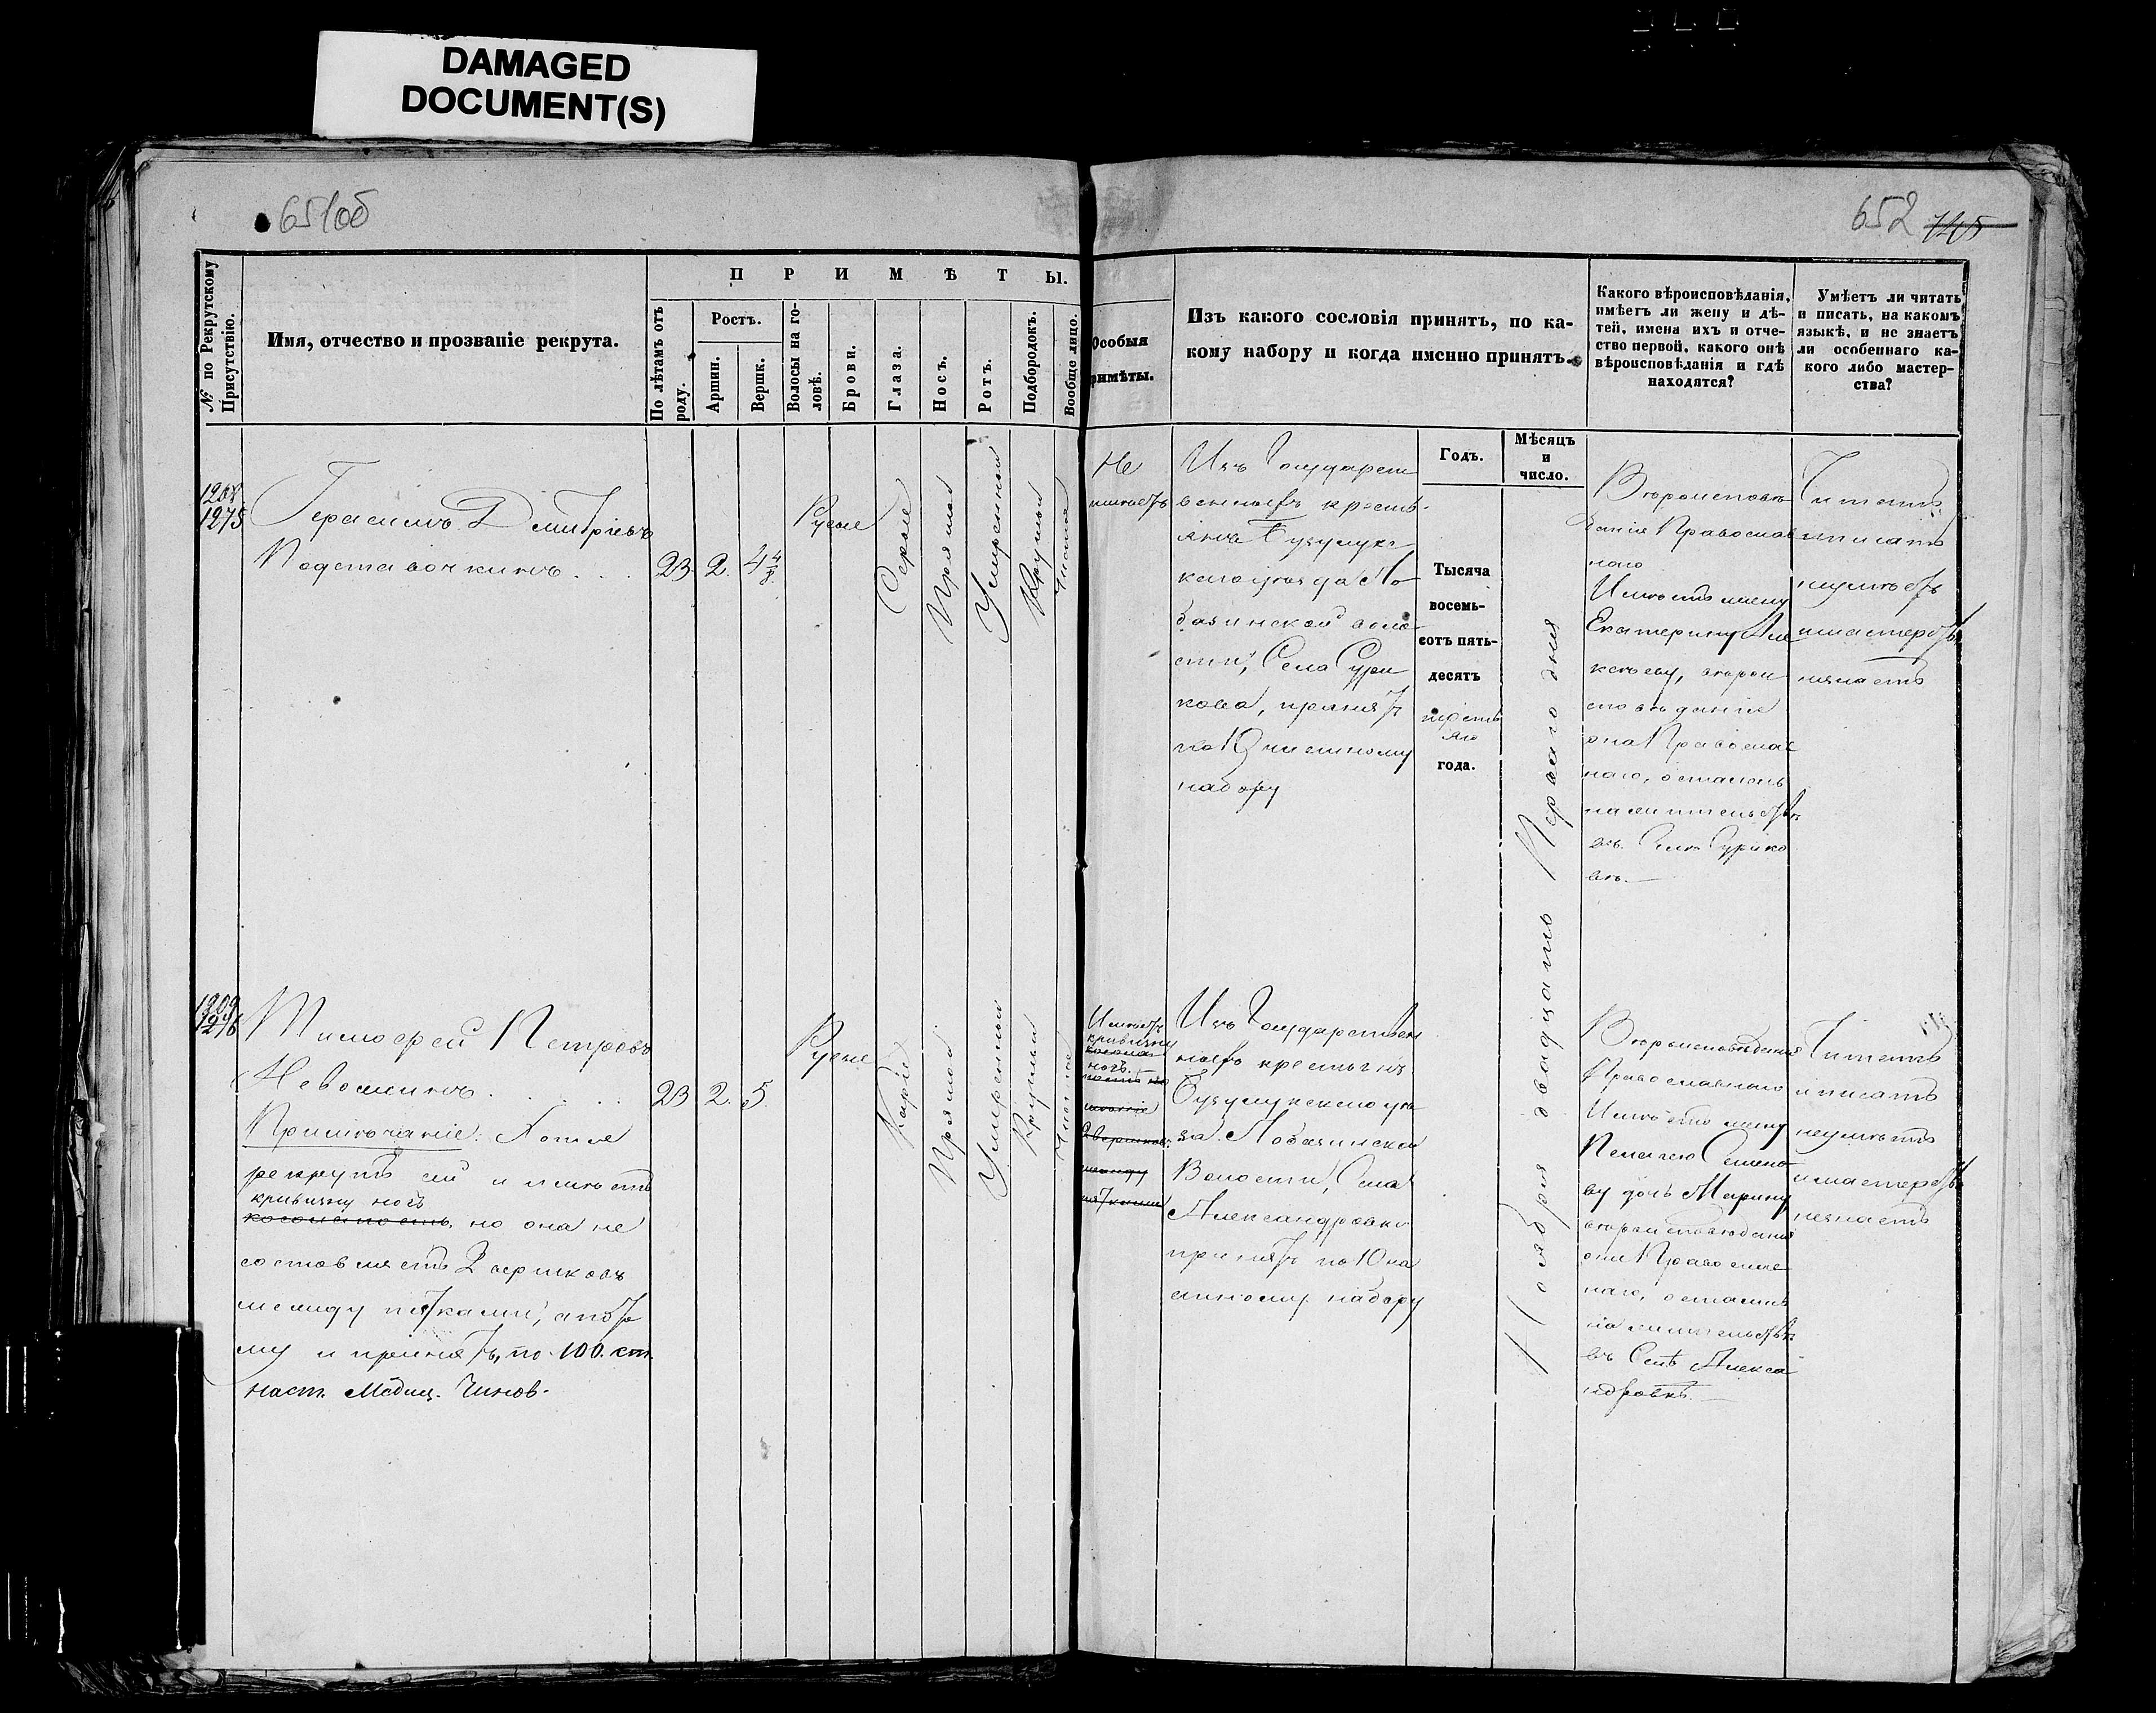 DAMAGED
DOCUMENT(S)
651об
652 745
№ по Рекрутскому
Присутствію.
Имя, отчество и прозваніе рекрута.
П Р И М Ѣ Т Ы.
По лѣтамъ отъ
роду.
Ростъ.
Аршин.
Вершк.
Волосы на го-
ловѣ.
Брови.
Глаза.
Носъ.
Ротъ.
Подбородокъ.
Вообще лицо.
Особыя
римѣты.
Изъ какого сословія принятъ, по ка-
кому набору и когда именно принятъ.
Какого вѣроисповѣданія,
имѣетъ ли жену и дѣ-
тей, имена ихъ и отче-
ство первой, какого онѣ
вѣроисповѣданія и гдѣ
находятся?
Умѣетъ ли читать
и писать, на какомъ
языкѣ, и не знаетъ
ли особеннаго ка-
кого либо мастер-
ства?
Годъ.
Мѣсяцъ
и
число.
1208
1275
Герасимъ Дмитріевъ
Подставочкинъ . . .
23. 2. 4 4/8
Русые
Серые
Прямой
Умеренный
Круглый
Чистое
Не
имѣетъ
Изъ Государст
венныхъ кресть-
янъ Бузулукс
каго уѣзда Ло
базинской воло
сти, Села Сури
кова, принятъ
по 10 числному
набору
Тысяча
восемь-
сотъ пять-
десятъ
шесть
аго
года.
Ноября двадцать Перваго дня
Вѣроисповѣ
данія Православ
наго
Имѣетъ жену
Екатерину Але
ксѣеву, вѣрои
сповѣданія
она Православ
наго, осталась
на жительствѣ
въ Селѣ Сурико
вѣ.
Читать
и писать
неумѣетъ
и мастерства
незнаетъ
1209
1276
Тимофей Петровъ
Невошкинъ . . . .
23 2. 5.
Примѣчаніе: Хотя
рекрутъ сей и имѣетъ
кривизну ногъ
косолапость, но она не
составляетъ 2 вершковъ
между пятками, а пото
му и принятъ, по 100. ст.
наст. Медиц. Чинов.
Русые
Каріе
Прямой
Умеренный
Круглый
Чистое
Имѣетъ
кривизну
ногъ.
2 вершков.
между
пятками
Изъ Государствен
ныхъ крестьянъ
Бузулукскаго уѣз
да Лобазинской
Волости, Села
Александровки
принятъ по 10 на
личному набору
Вѣроисповѣданія
Православнаго
Имѣетъ жену
Пелагею Семено
ву дочь Марину
вѣроисповѣданія
они Православ
наго, остались
на жительствѣ
въ Селѣ Алекса
ндровкѣ.
Читать
и писать
неумѣетъ
и мастерства
незнаетъ